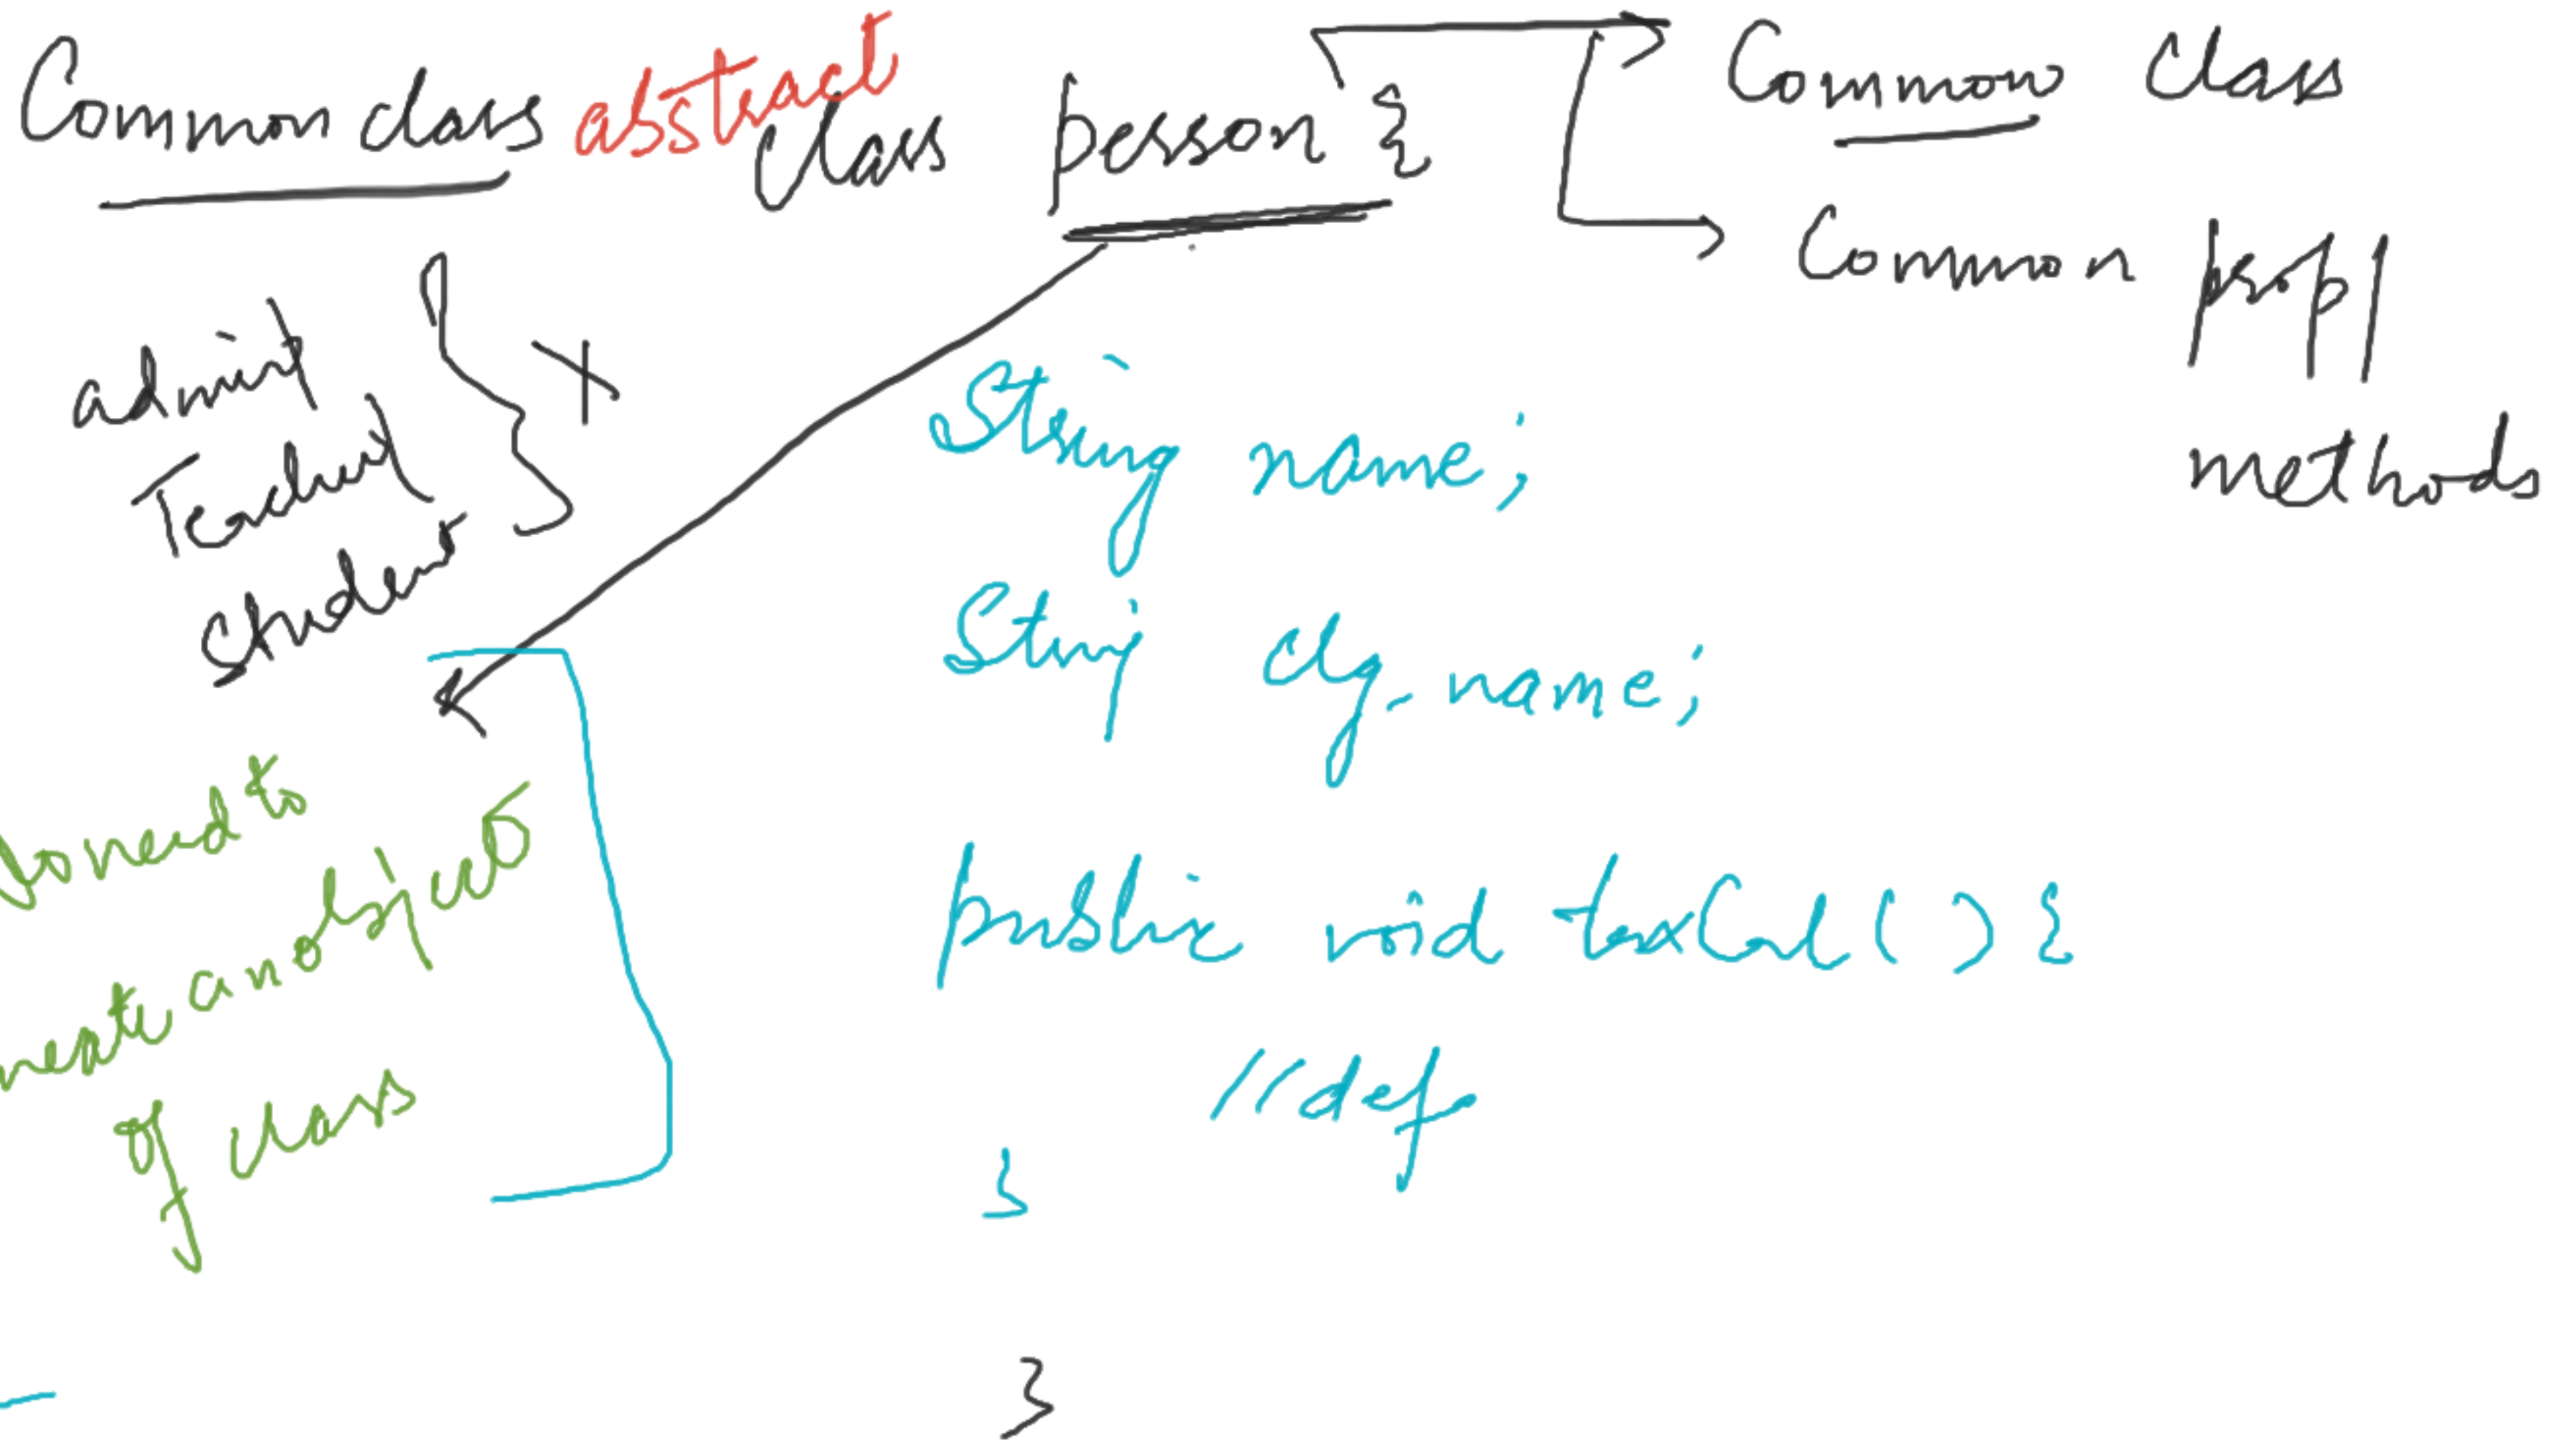 Common class abstract class person {
Common class
Common prop/
methods
admin/
Teacher/
Student
} X
String name;
String clg_name;
public void taxCal() {
//def
}
}
No need to
create an object
of class